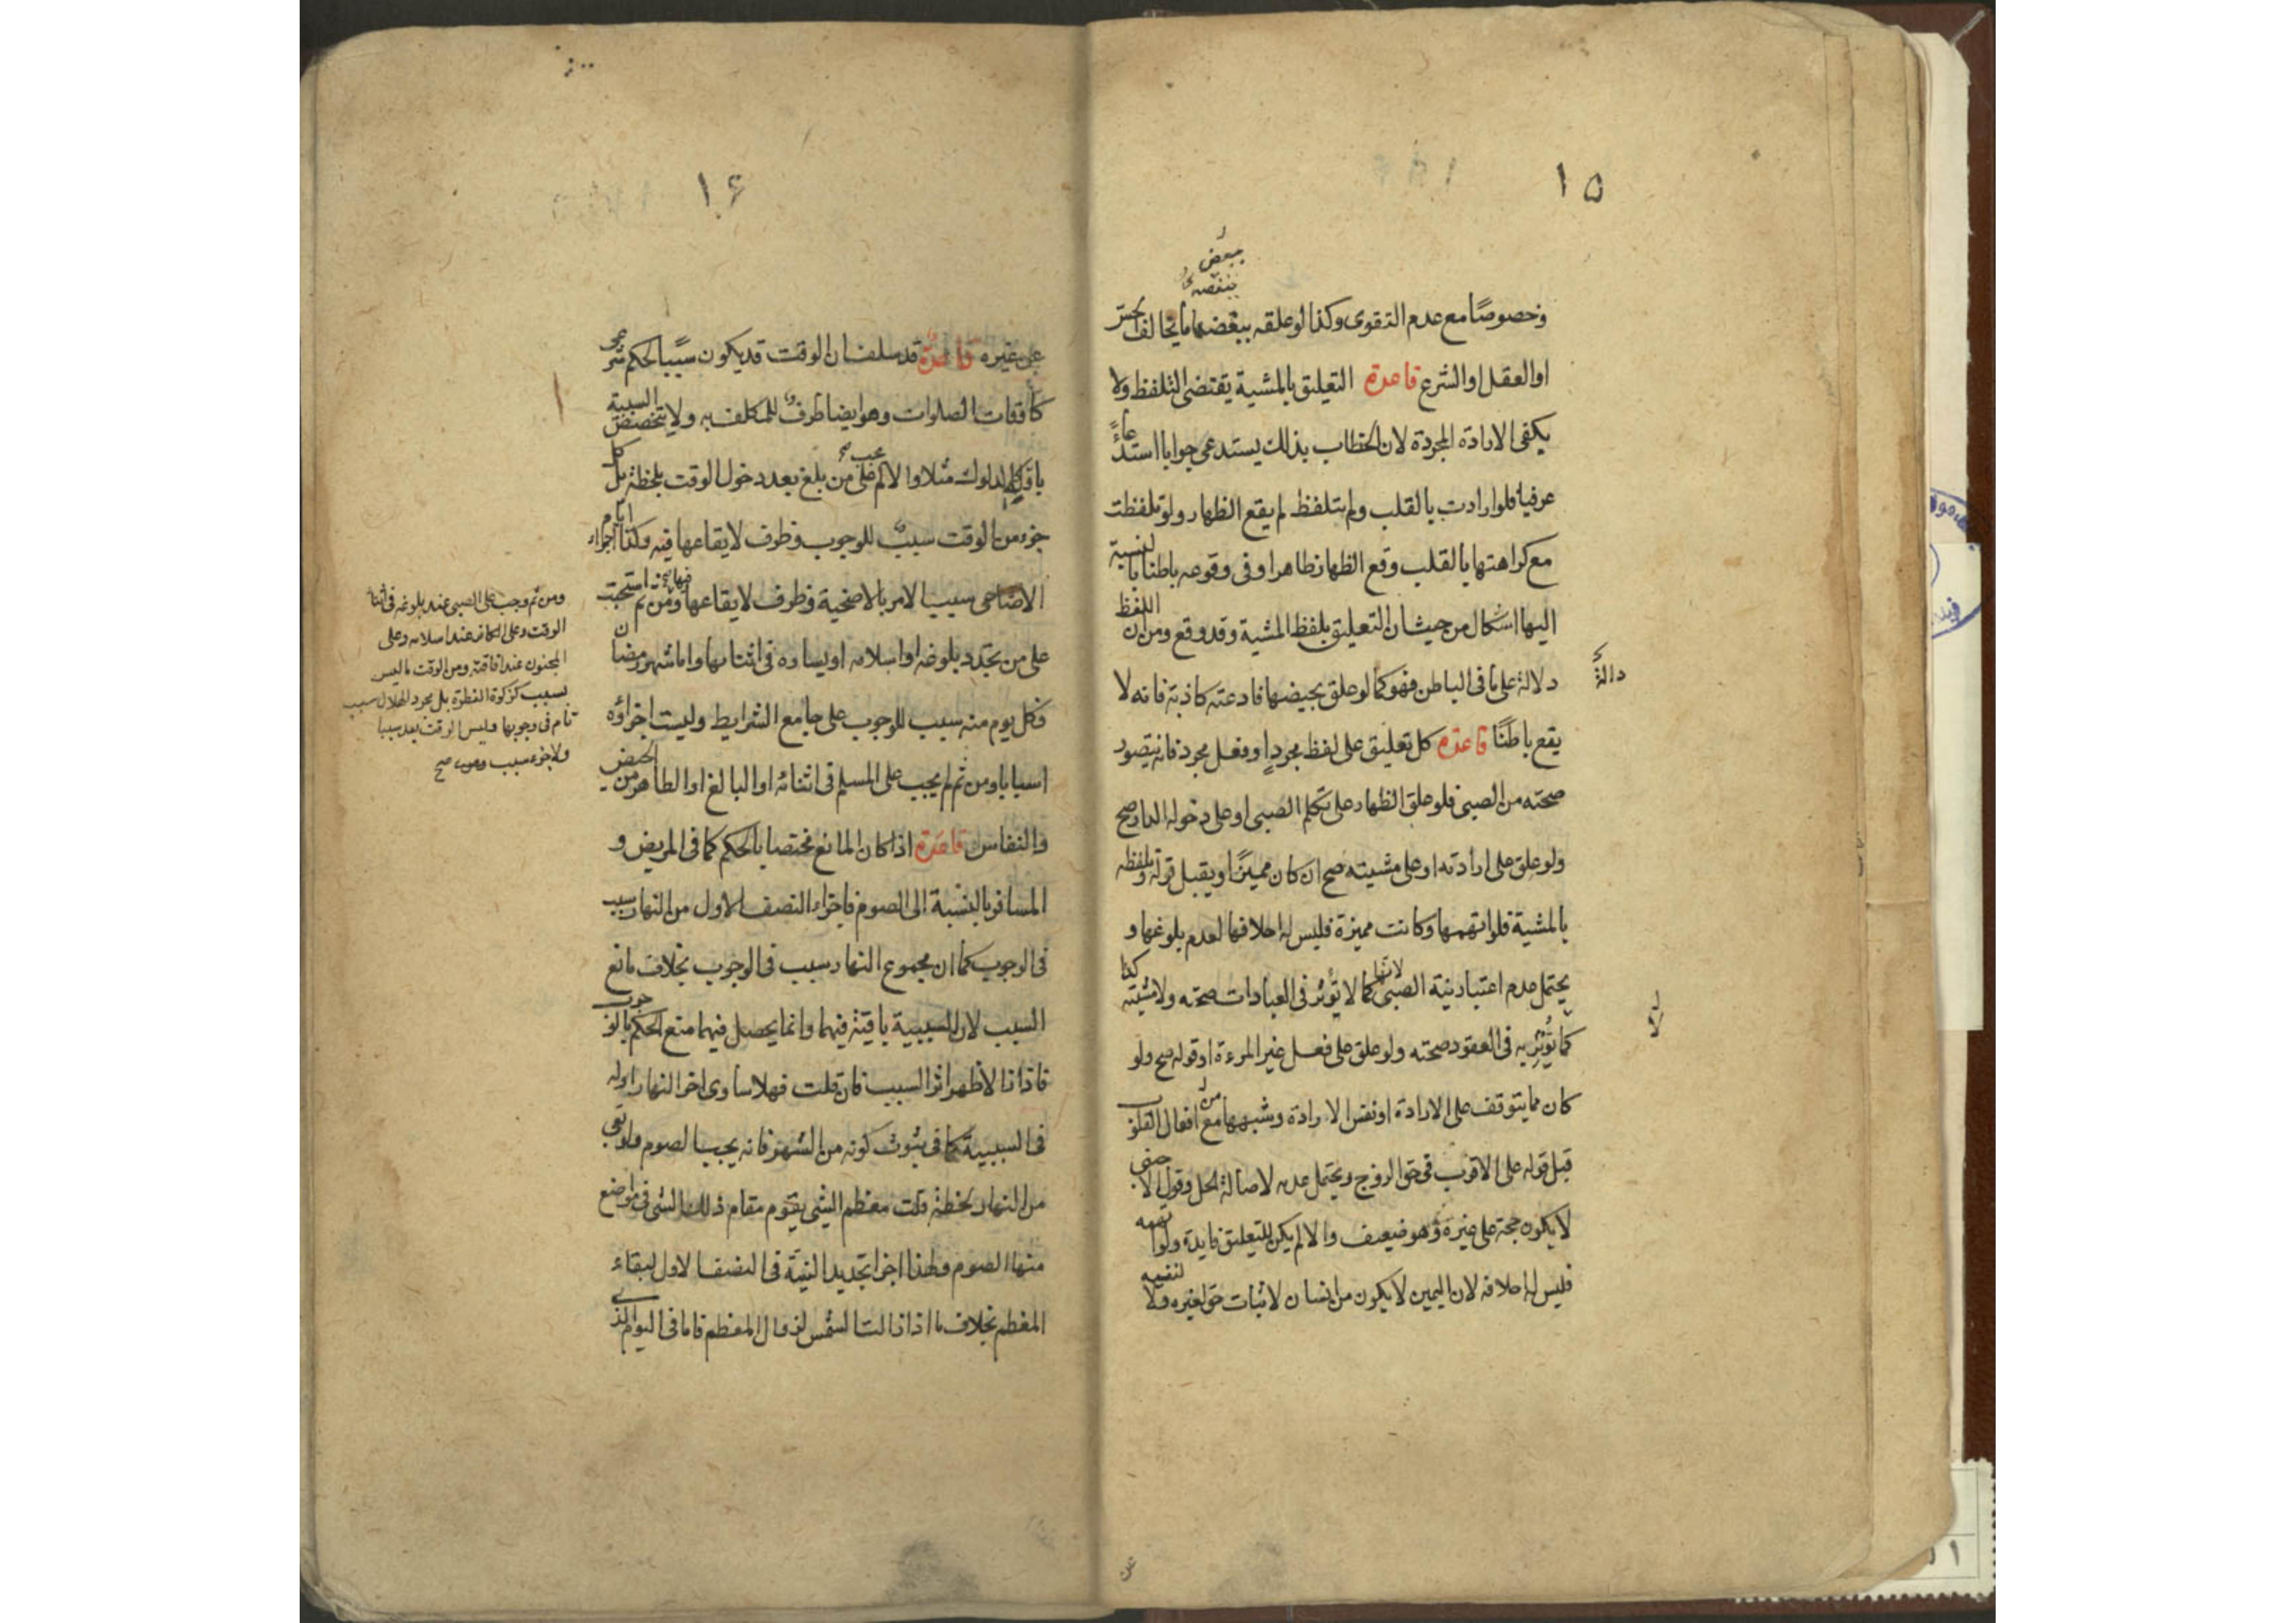 ١٥
ببعض
ببغضه
وخصوصًا مع عدم التقوى وكذا لو علقه ببغضها ما يخالف الحس
او العقل او الشرع قاعدة التعليق بالمشية يقتضى التلفظ ولا
يكفى الارادة المجردة لان الخطاب بذلك يستدعى جوابا استدعاءً
عرفيا فلو ارادت بالقلب ولم يتلفظ لم يقع الظهار ولو تلفظت
مع كراهتها بالقلب وقع الظهار ظاهرا وفى وقوعه باطنا بالنسبة
اليها اشكال من حيث ان التعليق بلفظ المشية وقد وقع ومن ان اللفظ
دلالة على ما فى الباطن فهو كما لو علق بحيضها فادعته كاذبة فانه لا
دالة
يقع باطنًا قاعدة كل تعليق على لفظ مجرد او فعل مجرد فانه يتصور
صحته من الصبى فلو علق الظهار على تكلم الصبى او على دخوله الدار صح
ولو علق على ارادته او على مشيته صح ان كان مميزًا ويقبل قوله وتلفظه
بالمشية فلو اتهمها وكانت مميزة فليس له احلافها لعدم بلوغها و
يحتمل عدم اعتبار نية الصبى لانها كما لا تؤثر فى العبادات صحته ولا مشيته كذا
لا
كما تؤثر به فى العقود صحته ولو علق على فعل غير المرءة او قوله صح ولو
كان مما يتوقف على الارادة او نفس الارادة وشبهها مع من افعال القلوب
قبل قوله على الاقرب فى حق الزوج ويحتمل عدمه لاصالة الحل وقول الاجنبى
لا يكون حجة على غيره وهو ضعيف والا لم يكن للتعليق فايدة ولو اتهمه
فليس له احلافه لان اليمين لا يكون من انسان لاثبات حق لغيره ولا لنفيه
عن
١۶
عن غيره قاعدة قد سلف ان الوقت قد يكون سببا لحكم شرعى
كاوقات الصلوات وهو ايضا ظرف للمكلف به ولا يتخصص السببية
باول الدلوك مثلا والا لم يجب على من بلغ بعد دخول الوقت بلحظة بل كل
جزء من الوقت سبب للوجوب وظرف لايقاعها فيه وكذا اجزاء ايام
الاضاحى سبب الامر بالاضحية وظرف لايقاعها فيها ومن ثم استحبت
على من تجدد بلوغه او اسلامه او يساره فى اثنائها واما شهر رمضان
فكل يوم منه سبب للوجوب على جامع الشرايط وليست اجزاؤه
اسبابا ومن ثم لم يجب على المسلم فى اثنائه او البالغ او الطاهر من الحيض
والنفاس قاعدة اذا كان المانع مختصا بالحكم كما فى المريض و
المسافر بالنسبة الى الصوم فاجزاء النصف الاول من النهار سبب
فى الوجوب كما ان مجموع النهار سبب فى الوجوب بخلاف مانع
السبب لان السببية باقية فيهما وانما يحصل فيهما منع الحكم بالوجوب
فاذا زالا ظهر اثر السبب فان قلت فهلا ساوى اخر النهار اوله
فى السببية كما فى ثبوت كونه من الشهر فانه يجب الصوم ولو بقى
من النهار لحظة قلت معظم الشى يقوم مقام ذلك الشى فى مواضع
منها الصوم ولهذا اجزا تجديد النية فى النصف الاول لبقاء
المعظم بخلاف ما اذا زالت الشمس لزوال المعظم فاما فى اليوم الذى
ومن ثم وجب على الصبى عند بلوغه فى اثناء
الوقت وعلى الكافر عند اسلامه وعلى
المجنون عند افاقته ومن الوقت ما ليس
بسبب كزكوة الفطرة بل مجرد الهلال سبب
تام فى وجوبها وليس الوقت بعد سببا
ولا جزء سبب صح